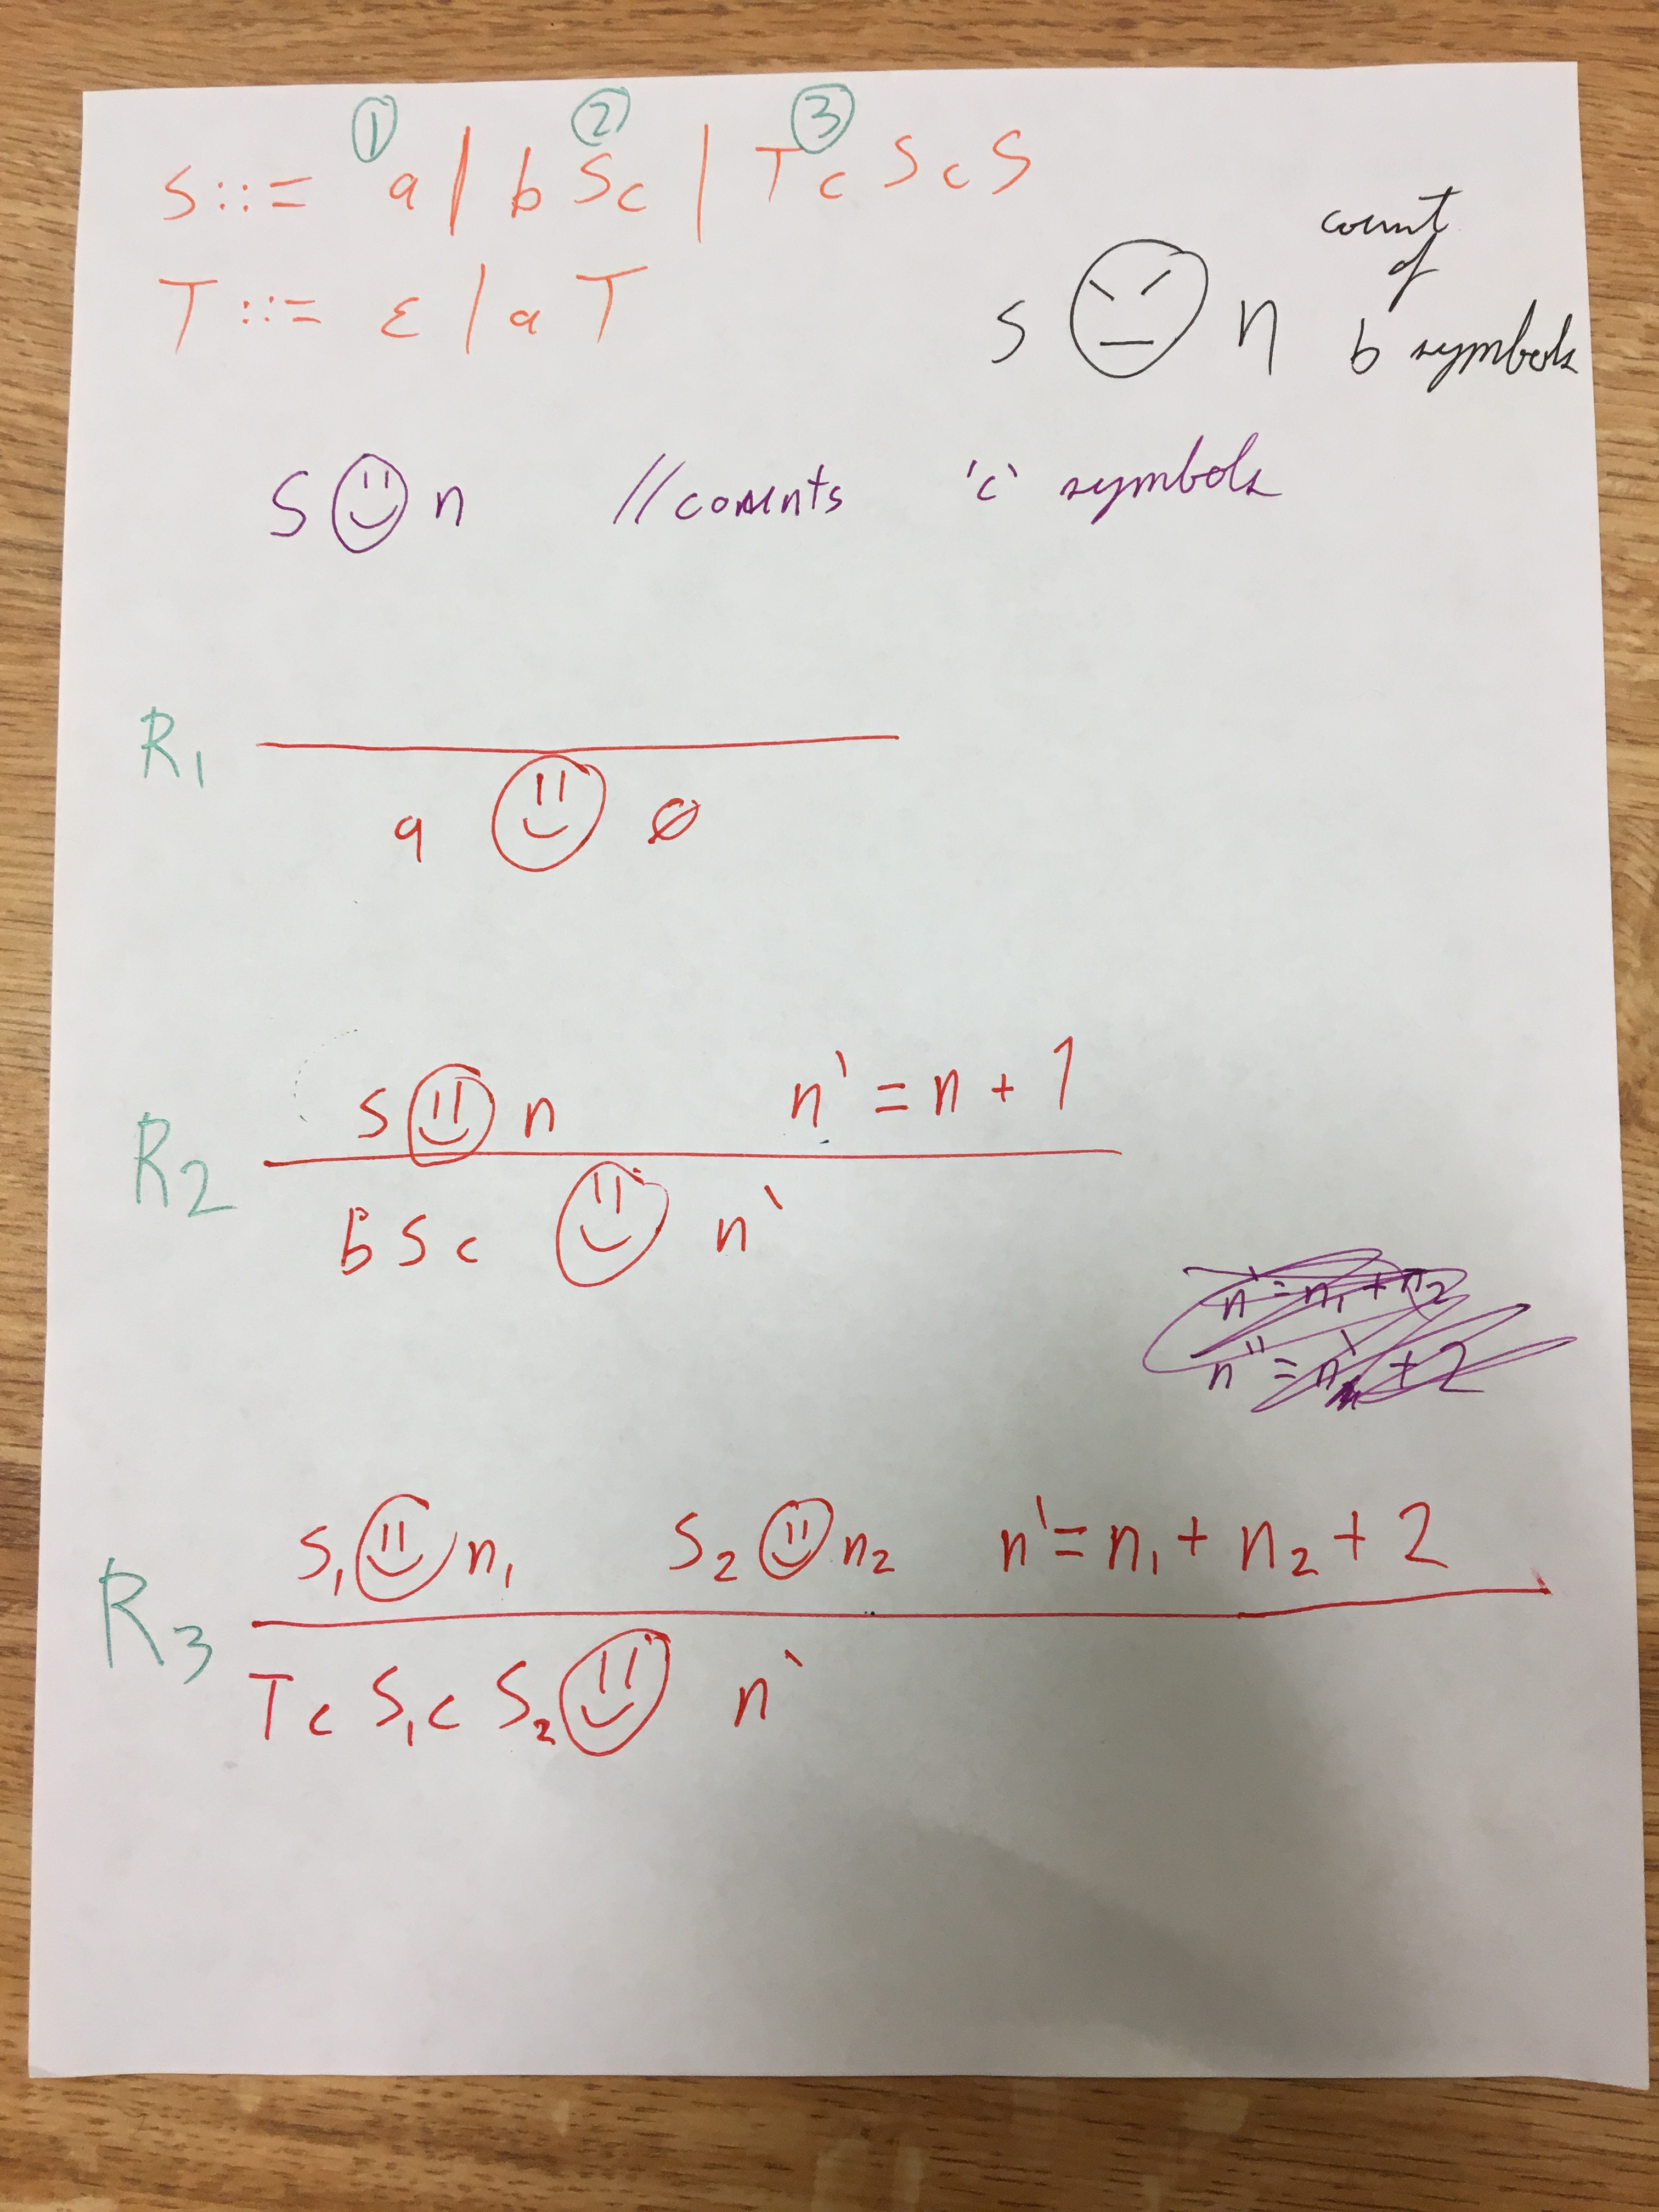 ① ② ③
S ::= a | b S c | T c S c S
T ::= ε | a T
count
of
S n b symbols
S n // counts 'c' symbols
R1
a ∅
S n n' = n + 1
R2
b S c n'
n' = n1 + n2
n'' = n' + 2
S1 n1 S2 n2 n' = n1 + n2 + 2
R3
T c S1 c S2 n'